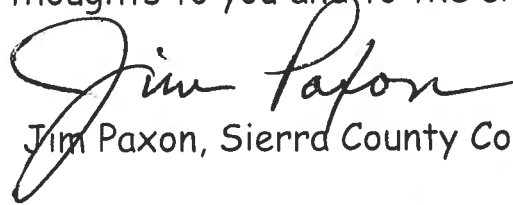 thoughts to you and to the
Jim Paxon
Jim Paxon, Sierra County Co